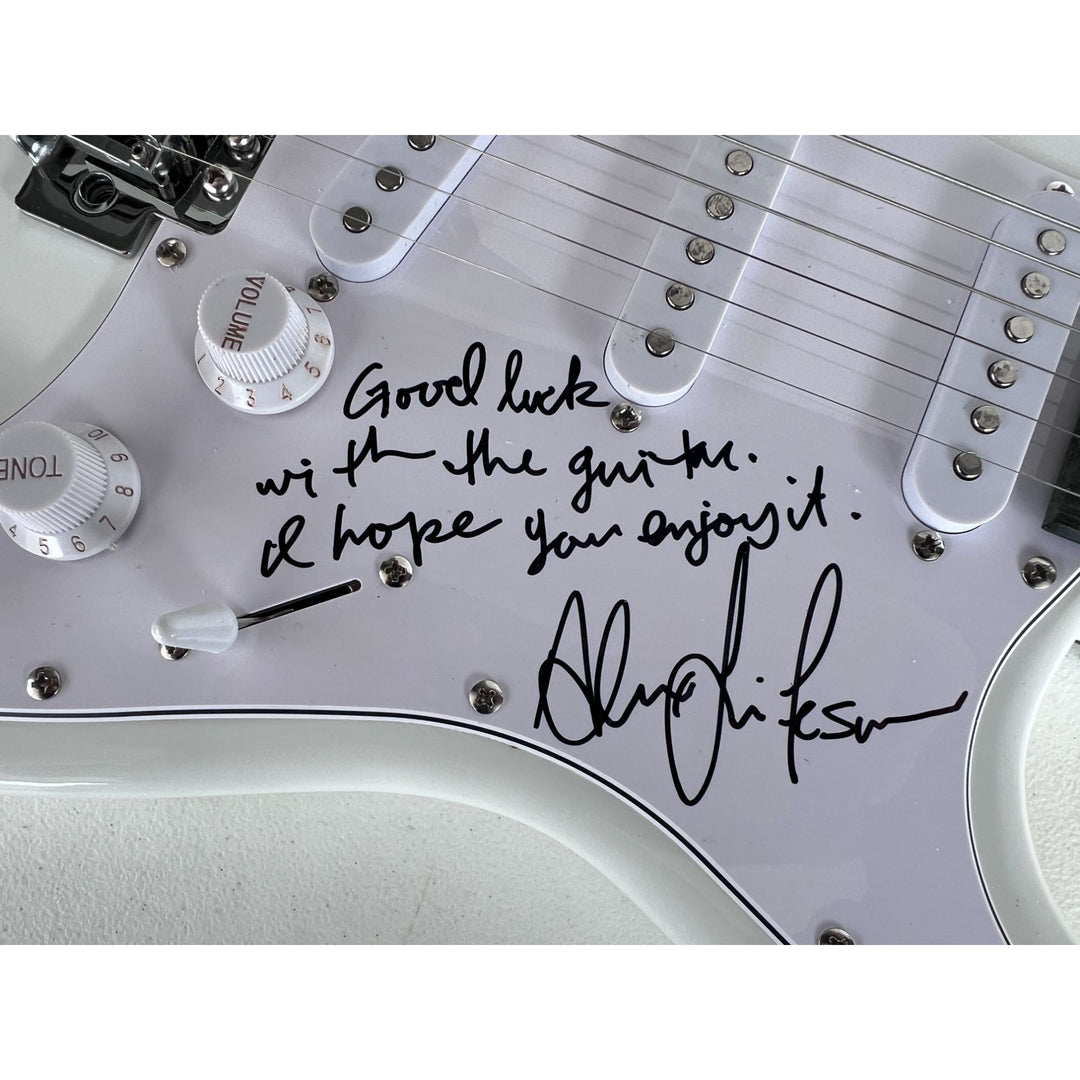 VOLUME
1 2 3 4 5 6
TONE
4 5 6 7 8 9 10
Good luck
with the guitar.
I hope you enjoy it.
Alex Lifeson